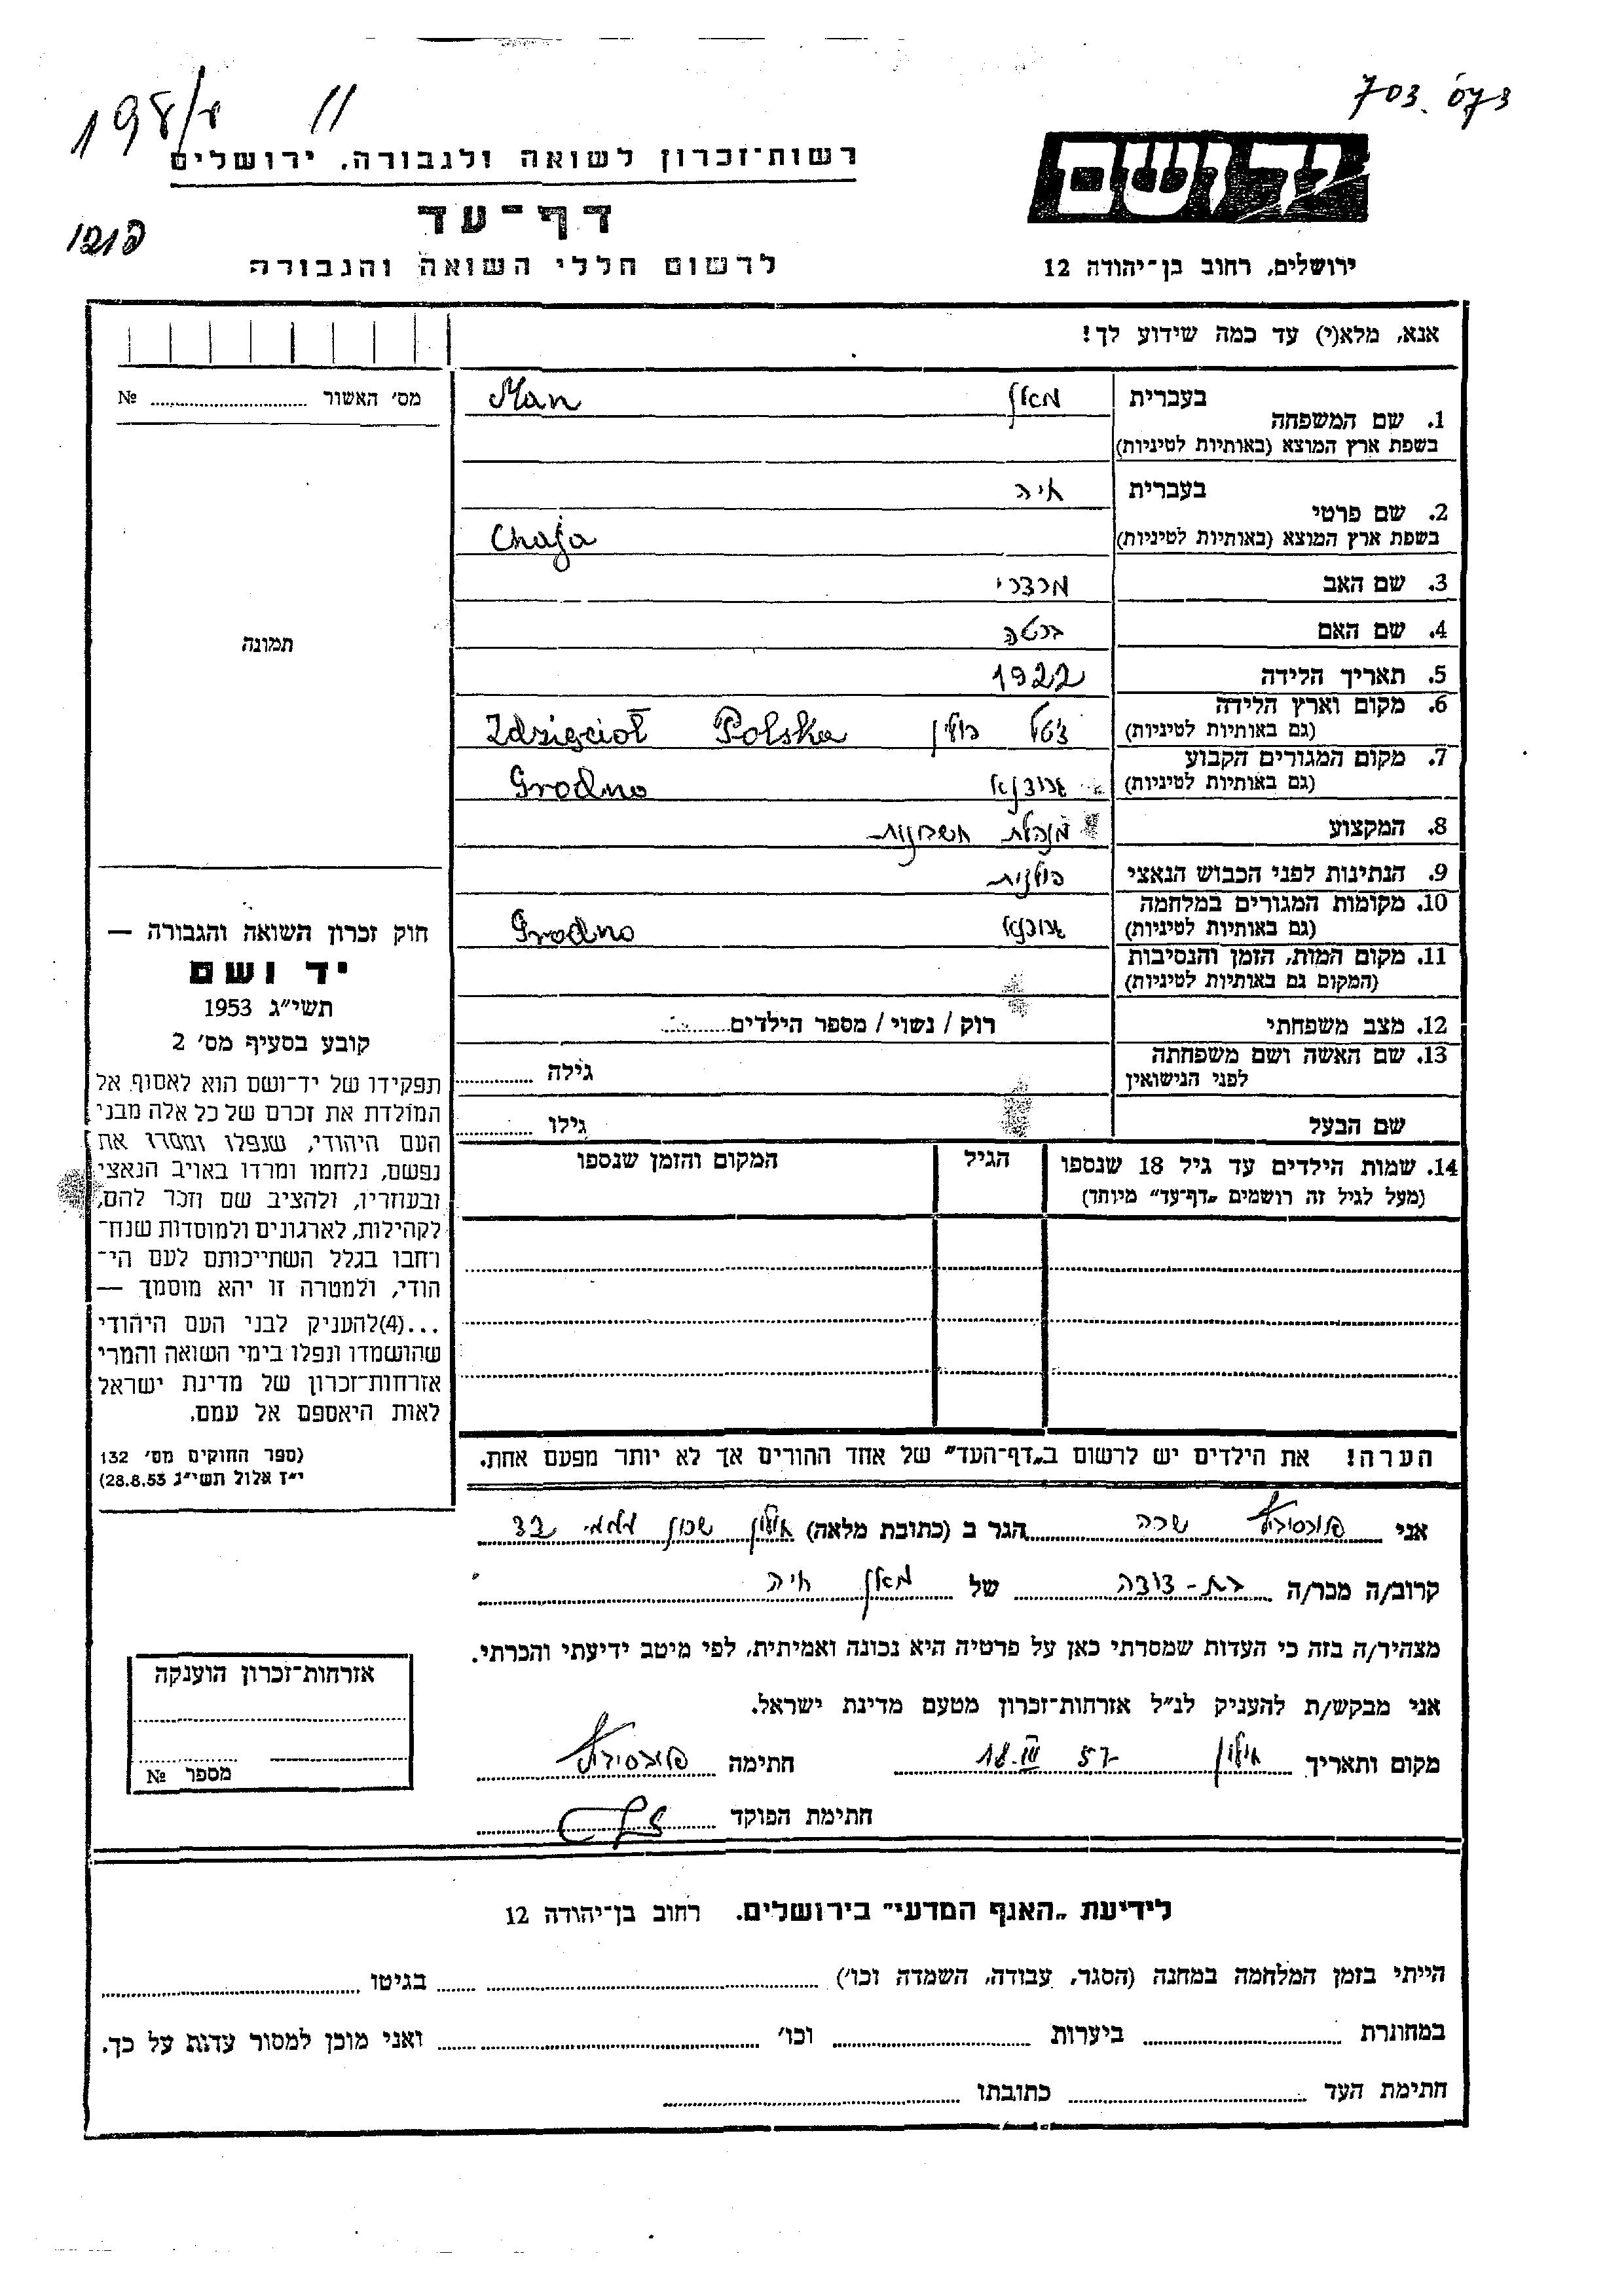 703.073
198/ II
ידושם
רשות־זכרון לשואה ולגבורה, ירושלים
דף־עד
לרשום חללי השואה והגבורה
ירושלים, רחוב בן־יהודה 12
אנא, מלא(י) עד כמה שידוע לך!
מס׳ האשור № 
1. שם המשפחה
בעברית מאן Man
בשפת ארץ המוצא (באותיות לטיניות)
2. שם פרטי
בעברית חיה
בשפת ארץ המוצא (באותיות לטיניות) Chaja
3. שם האב מרדכי
4. שם האם
5. תאריך הלידה 1922
6. מקום וארץ הלידה
(גם באותיות לטיניות) זטל פולין Polska Zdzięcioł
7. מקום המגורים הקבוע
(גם באותיות לטיניות) גרודנא Grodno
8. המקצוע מנהלת חשבונות
9. הנתינות לפני הכבוש הנאצי פולנית
10. מקומות המגורים במלחמה
(גם באותיות לטיניות) גרודנא Grodno
11. מקום המות, הזמן והנסיבות
(המקום גם באותיות לטיניות)
12. מצב משפחתי רוק / נשוי / מספר הילדים
13. שם האשה ושם משפחתה
לפני הנישואין גילה
שם הבעל גילו
14. שמות הילדים עד גיל 18 שנספו הגיל המקום והזמן שנספו
(מעל לגיל זה רושמים „דף־עד״ מיוחד)
תמונה
חוק זכרון השואה והגבורה —
יד ושם
תשי״ג 1953
קובע בסעיף מס׳ 2
תפקידו של יד־ושם הוא לאסוף אל
המולדת את זכרם של כל אלה מבני
העם היהודי, שנפלו ומסרו את
נפשם, נלחמו ומרדו באויב הנאצי
ובעוזריו, ולהציב שם וזכר להם,
לקהילות, לארגונים ולמוסדות שנח־
רחבו בגלל השתייכותם לעם הי־
הודי, ולמטרה זו יהא מוסמך —
...(4)להעניק לבני העם היהודי
שהושמדו ונפלו בימי השואה והמרי
אזרחות־זכרון של מדינת ישראל
לאות היאספם אל עמם.
(ספר החוקים מס׳ 132
י״ז אלול תשי״ג 28.8.53)
הערה! את הילדים יש לרשום ב„דף־העד״ של אחד ההורים אך לא יותר מפעם אחת.
אני שרה הגר ב (כתובת מלאה) אילון שכון
קרוב/ה מכר/ה בת-דודה של מאן חיה
מצהיר/ה בזה כי העדות שמסרתי כאן על פרטיה היא נכונה ואמיתית, לפי מיטב ידיעתי והכרתי.
אני מבקש/ת להעניק לנ״ל אזרחות־זכרון מטעם מדינת ישראל.
מקום ותאריך 18.III 57 חתימה
חתימת הפוקד
אזרחות־זכרון הוענקה
מספר №
לידיעת „האגף המדעי״ בירושלים. רחוב בן־יהודה 12
הייתי בזמן המלחמה במחנה (הסגר, עבודה, השמדה וכו׳) בגיטו
במחתרת ביערות וכו׳ ואני מוכן למסור עדות על כך.
חתימת העד כתובתו